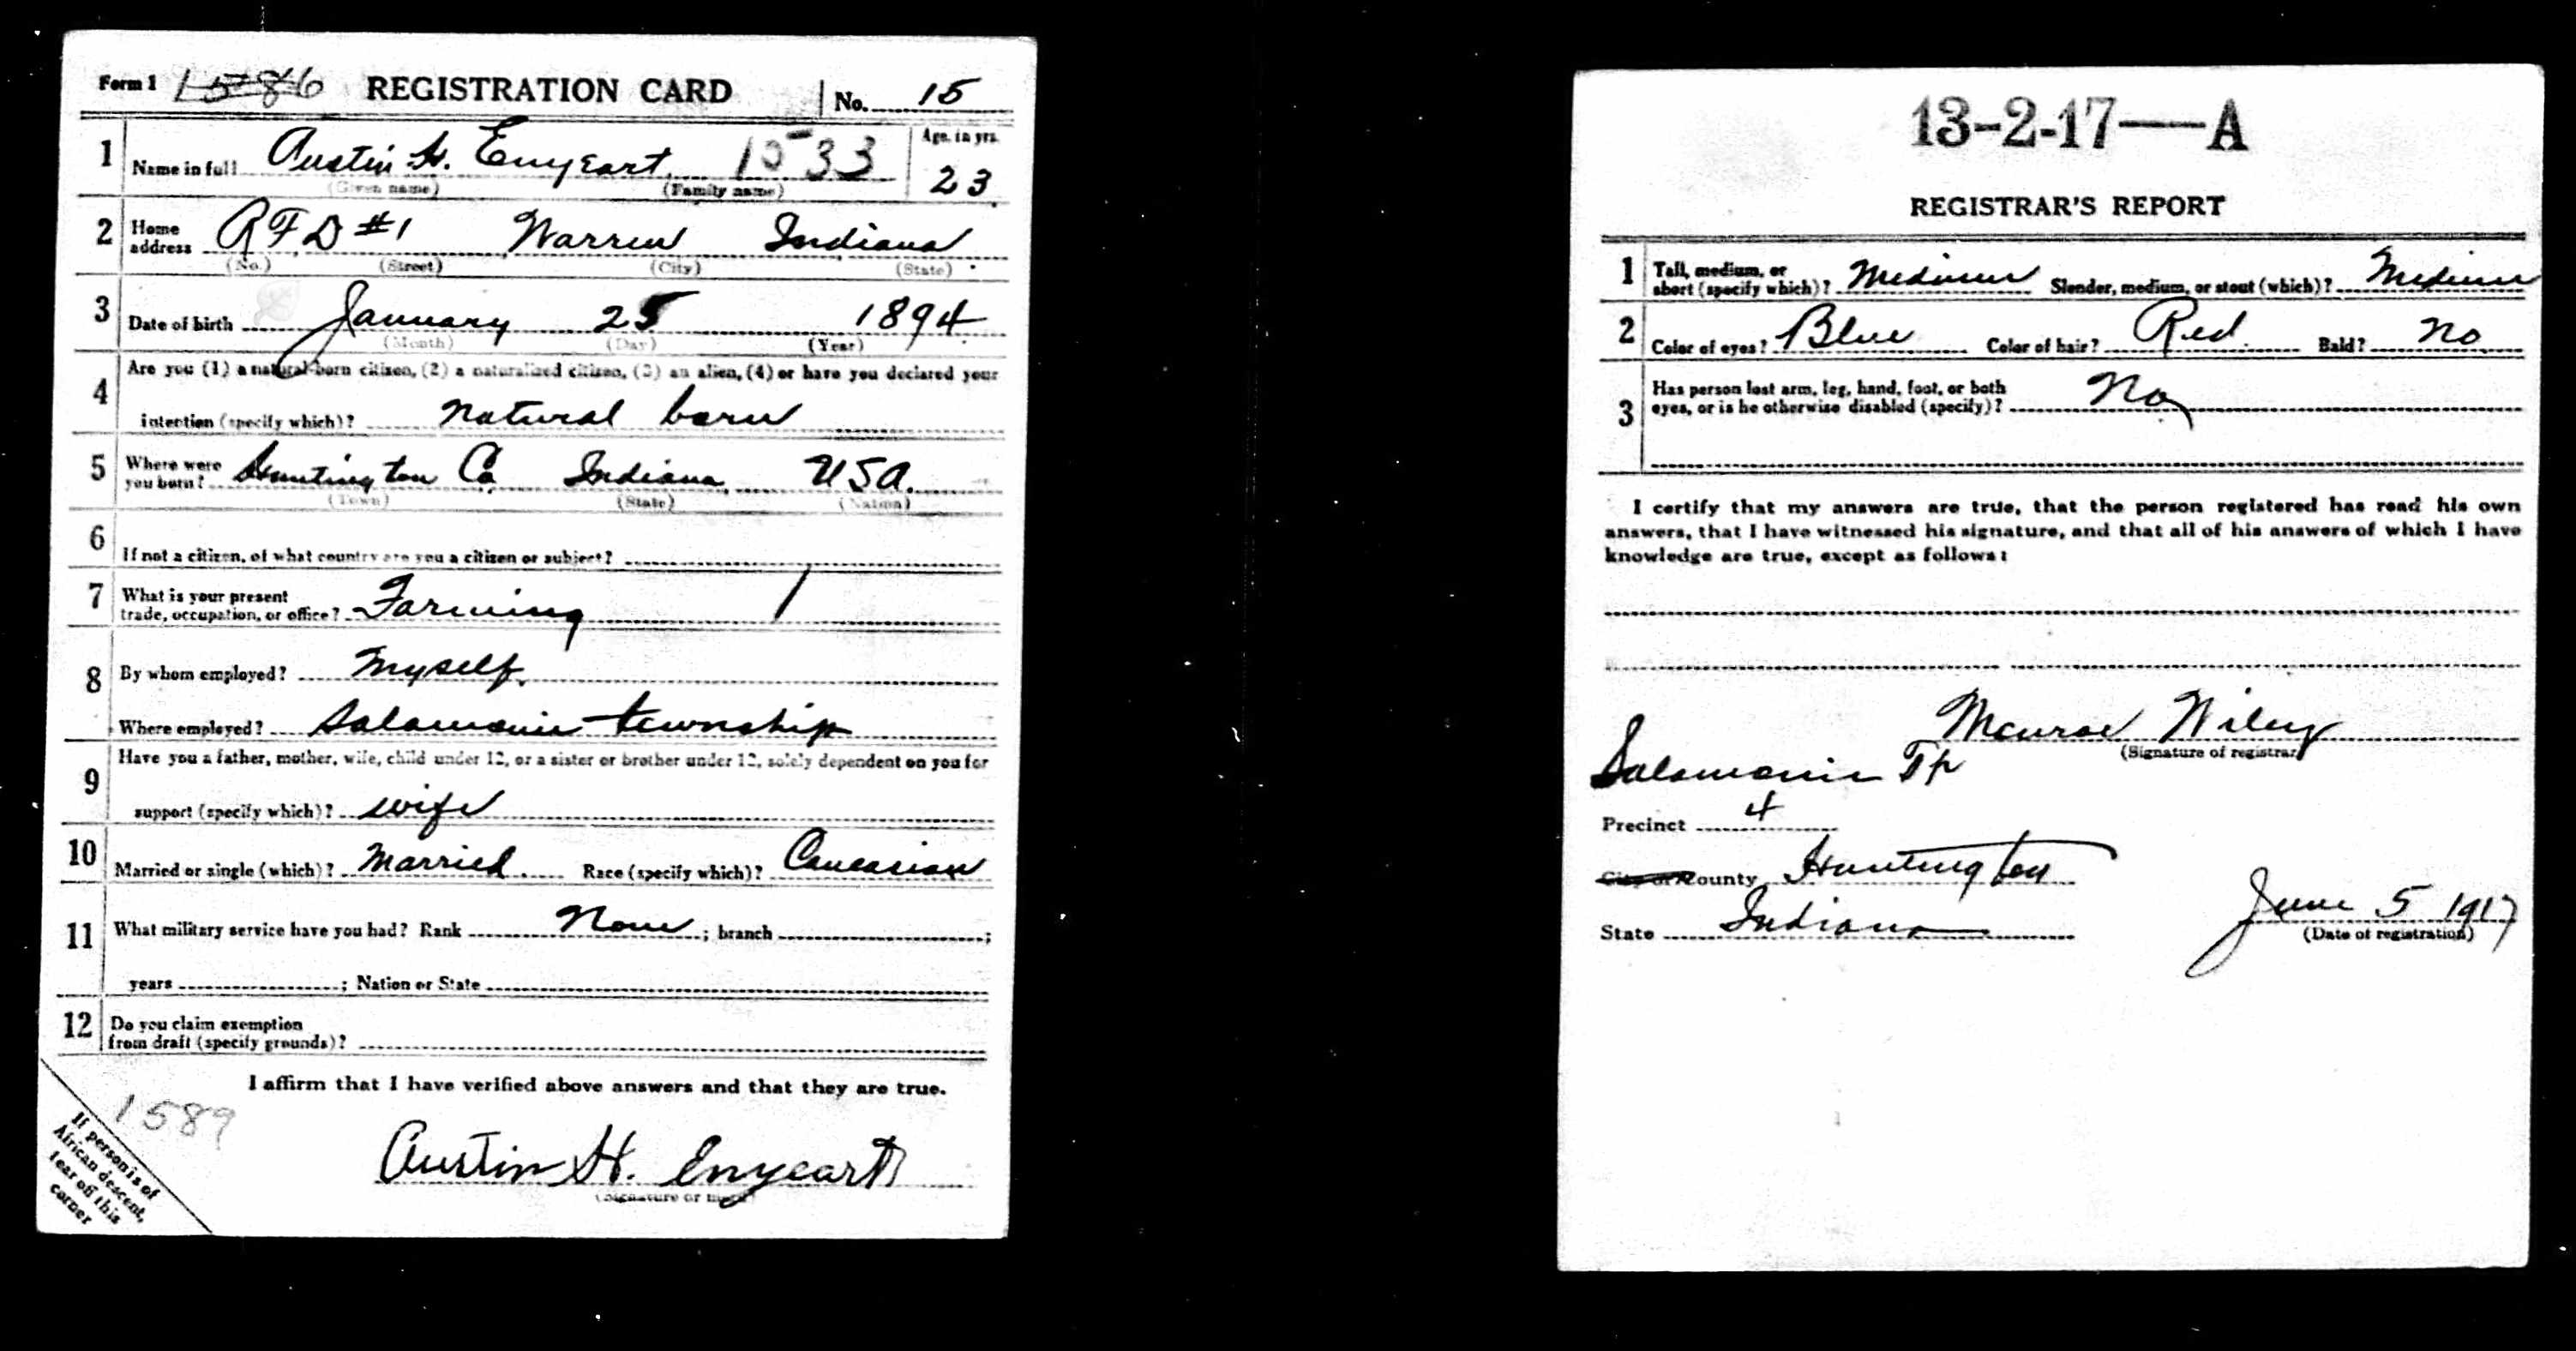 Form 1 1586 REGISTRATION CARD No. 15
1 Name in full Austin H. Enyeart 1533 Age, in yrs.
(Given name) (Family name) 23
2 Home address RFD #1 Warren Indiana
(No.) (Street) (City) (State)
3 Date of birth January 25 1894
(Month) (Day) (Year)
4 Are you (1) a natural-born citizen, (2) a naturalized citizen, (3) an alien, (4) or have you declared your
intention (specify which)? natural born
5 Where were you born? Huntington Co Indiana USA.
(Town) (State) (Nation)
6 If not a citizen, of what country are you a citizen or subject?
7 What is your present
trade, occupation, or office? Farming
8 By whom employed? Myself.
Where employed? Salamonie township
9 Have you a father, mother, wife, child under 12, or a sister or brother under 12, solely dependent on you for
support (specify which)? wife
10 Married or single (which)? Married. Race (specify which)? Caucasian
11 What military service have you had? Rank None ; branch ;
years ; Nation or State
12 Do you claim exemption
from draft (specify grounds)?
I affirm that I have verified above answers and that they are true.
1589
If person is of
African descent,
tear off this
corner
Austin H. Enyeart
(Signature or mark)
13-2-17—A
REGISTRAR'S REPORT
1 Tall, medium, or
short (specify which)? Medium Slender, medium, or stout (which)? Medium
2 Color of eyes? Blue Color of hair? Red. Bald? No
3 Has person lost arm, leg, hand, foot, or both
eyes, or is he otherwise disabled (specify)? No
I certify that my answers are true, that the person registered has read his own
answers, that I have witnessed his signature, and that all of his answers of which I have
knowledge are true, except as follows:
Monroe Wiley
(Signature of registrar)
Salamonie Tp
Precinct 4
City or County Huntington
State Indiana
June 5 1917
(Date of registration)